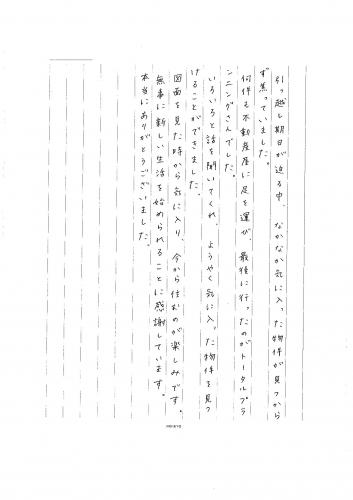 引っ越し期日が迫る中、なかなか気に入った物件が見つから
ず焦っていました。
何件も不動産屋に足を運び、最後に行ったのがトータルプラ
ンニングさんでした。
いろいろと話を聞いてくれ、ようやく気に入った物件を見つ
けることができました。
図面を見た時から気に入り、今から住むのが楽しみです。
無事に新しい生活を始められることに感謝しています。
本当にありがとうございました。